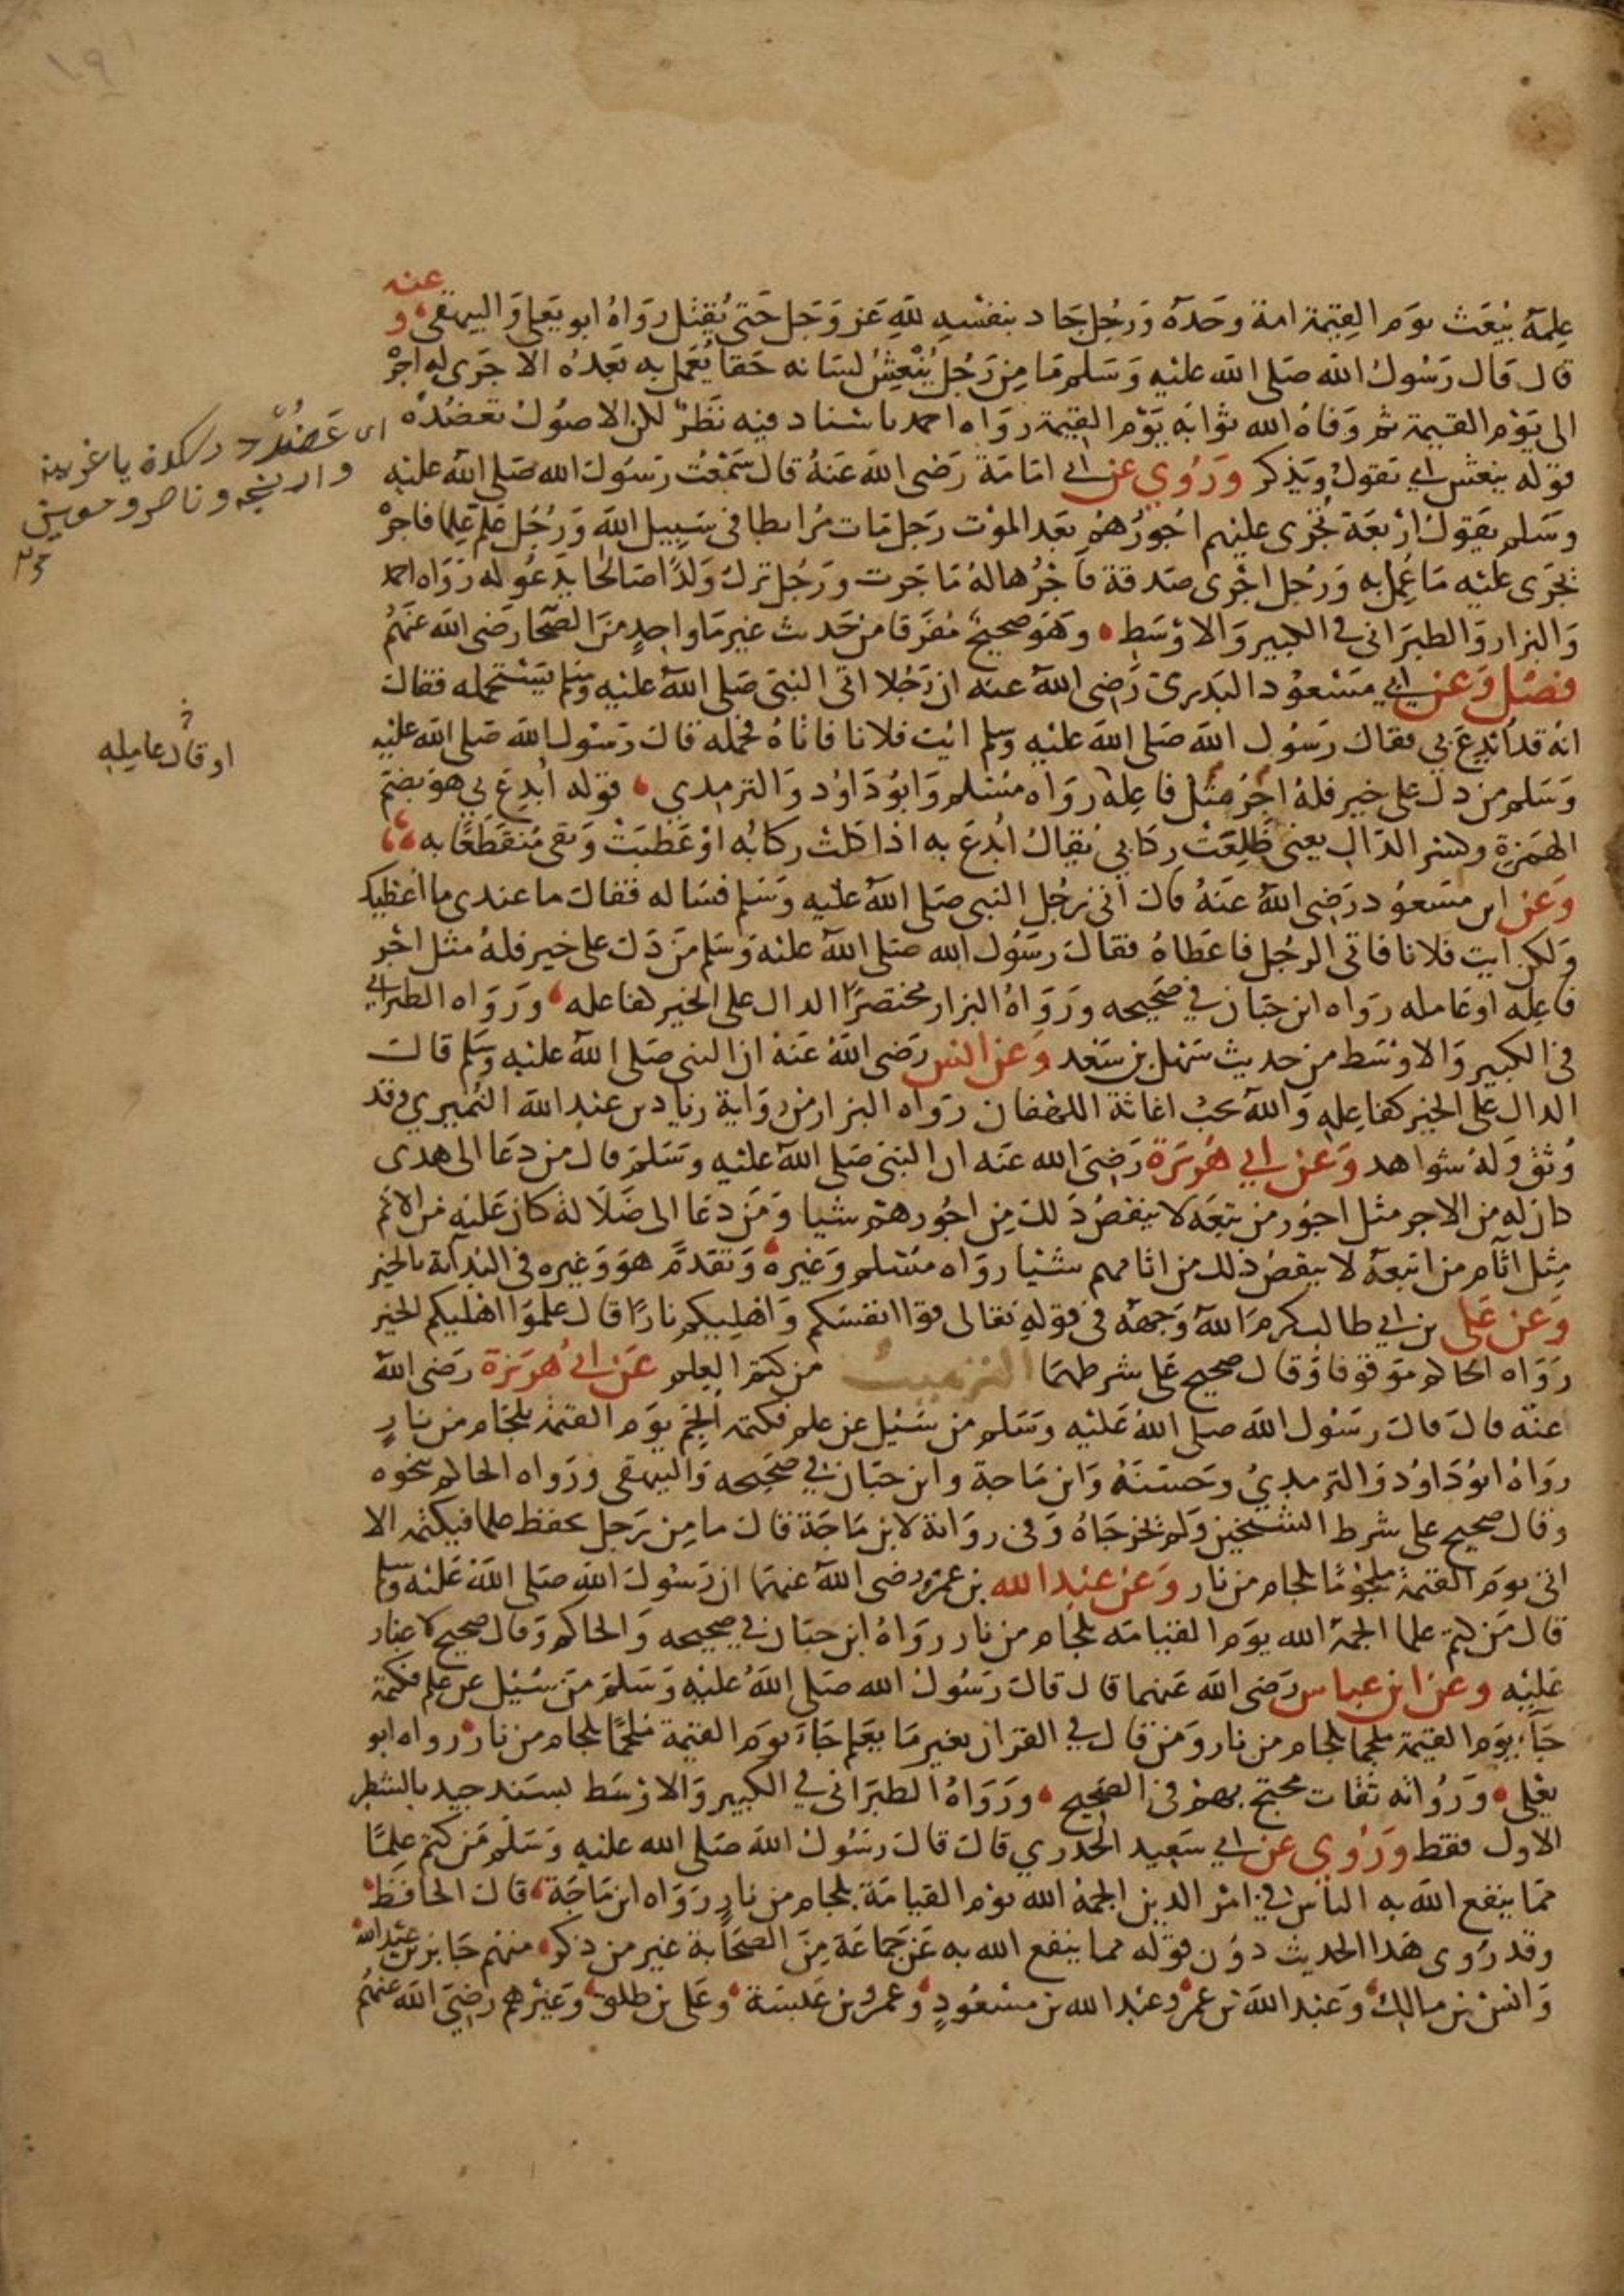 ١٩
علمه يبعث يوم القيمة امة وحده ورجل جاد بنفسه لله عز وجل حتى يقتل رواه ابو يعلى والبيهقي وعنه
قال قال رسول الله صلى الله عليه وسلم ما من رجل ينعش لسانه حقا يعمل به بعده الا جرى له اجر
الى يوم القيمة ثم وفاه الله ثوابه يوم القيمة رواه احمد باسناد فيه نظر لكن الاصول تعضده
قوله ينعش اي يقول ويذكر وروي عن ابي امامة رضى الله عنه قال سمعت رسول الله صلى الله عليه
وسلم يقول اربعة تجرى عليهم اجورهم بعد الموت رجل مات مرابطا في سبيل الله ورجل علم علما فاجر
تجرى عليه ما عمل به ورجل اجرى صدقة فاجرها له ما جرت ورجل ترك ولدا صالحا يدعو له رواه احمد
والبزار والطبراني في الكبير والاوسط وهو صحيح مفرقا من حديث غير ما واحد من الصحا رضى الله عنهم
فصل وعن ابي مسعود البدرى رضى الله عنه ان رجلا اتى النبى صلى الله عليه وسلم يستحمله فقال
انه قد ابدع بي فقال رسول الله صلى الله عليه وسلم ائت فلانا فاتاه فحمله قال رسول الله صلى الله عليه
وسلم من دل على خير فله اجر مثل فاعله رواه مسلم وابو داود والترمدي قوله ابدع بي هو بضم
الهمزة وكسر الدال يعني ظلعت ركابي يقال ابدع به اذا كلت ركابه او عطبت وبقى منقطعا به
وعن ابن مسعود رضى الله عنه قال اتى رجل النبى صلى الله عليه وسلم فساله فقال ما عندى ما اعطيك
ولكن ايت فلانا فاتى الرجل فاعطاه فقال رسول الله صلى الله عليه وسلم من دل على خير فله مثل اجر
فاعله او عامله رواه ابن حبان في صحيحه ورواه البزار مختصرا الدال على الخير كفاعله ورواه الطبراني
فى الكبير والاوسط من حديث سهل بن سعد وعن انس رضى الله عنه ان النبى صلى الله عليه وسلم قال
الدال على الخير كفاعله والله يحب اغاثة اللهفان رواه البزار من رواية زياد بن عبد الله النميري وقد
وثق وله شواهد وعن ابي هريرة رضى الله عنه ان النبى صلى الله عليه وسلم قال من دعا الى هدى
كان له من الاجر مثل اجور من تبعه لا ينقص ذلك من اجورهم شيا ومن دعا الى ضلالة كان عليه من الاثم
مثل اثام من اتبعه لا ينقص ذلك من اثامهم شيئا رواه مسلم وغيره وتقدم هو وغيره فى البداية بالخير
وعن على بن ابي طالب كرم الله وجهه فى قوله تعالى قوا انفسكم واهليكم نارا قال علموا اهليكم الخير
رواه الحاكم موقوفا وقال صحيح على شرطهما الترهيب من كتم العلم عن ابي هريرة رضى الله
عنه قال قال رسول الله صلى الله عليه وسلم من سئيل عن علم فكتمه الجم يوم القيمة بلجام من نار
رواه ابو داود والترمدي وحسنه وابن ماجة وابن حبان في صحيحه والبيهقى ورواه الحاكم بنحوه
وقال صحيح على شرط الشيخين ولم يخرجاه وفى رواية لابن ماجة قال ما من رجل يحفظ علما فيكتمه الا
اتى يوم القيمة ملجوما بلجام من نار وعن عبد الله بن عمرو رضى الله عنهما ان رسول الله صلى الله عليه وسلم
قال من كتم علما الجمه الله يوم القيامه بلجام من نار رواه ابن حبان في صحيحه والحاكم وقال صحيح لا غبار
عليه وعن ابن عباس رضى الله عنهما قال قال رسول الله صلى الله عليه وسلم من سئيل عن علم فكتمه
جاء يوم القيمة ملجما بلجام من نار ومن قال في القران بغير ما يعلم جاء يوم القيمة ملجما بلجام من نار رواه ابو
يعلى ورواته ثقات محتج بهم فى الصحيح ورواه الطبراني في الكبير والاوسط بسند جيد بالشطر
الاول فقط وروي عن ابي سعيد الخدري قال قال رسول الله صلى الله عليه وسلم من كتم علما
مما ينفع الله به الناس في امر الدين الجمه الله يوم القيامة بلجام من نار رواه ابن ماجة قال الحافظ
وقد روى هذا الحديث دون قوله مما ينفع الله به عن جماعة من الصحابة غير من ذكر منهم جابر بن عبد الله
وانس بن مالك وعبد الله بن عمر وعبد الله بن مسعود وعمرو بن عبسة وعلى بن طلق وغيرهم رضى الله عنهم
اى عضد
وناصر
او قال عامله